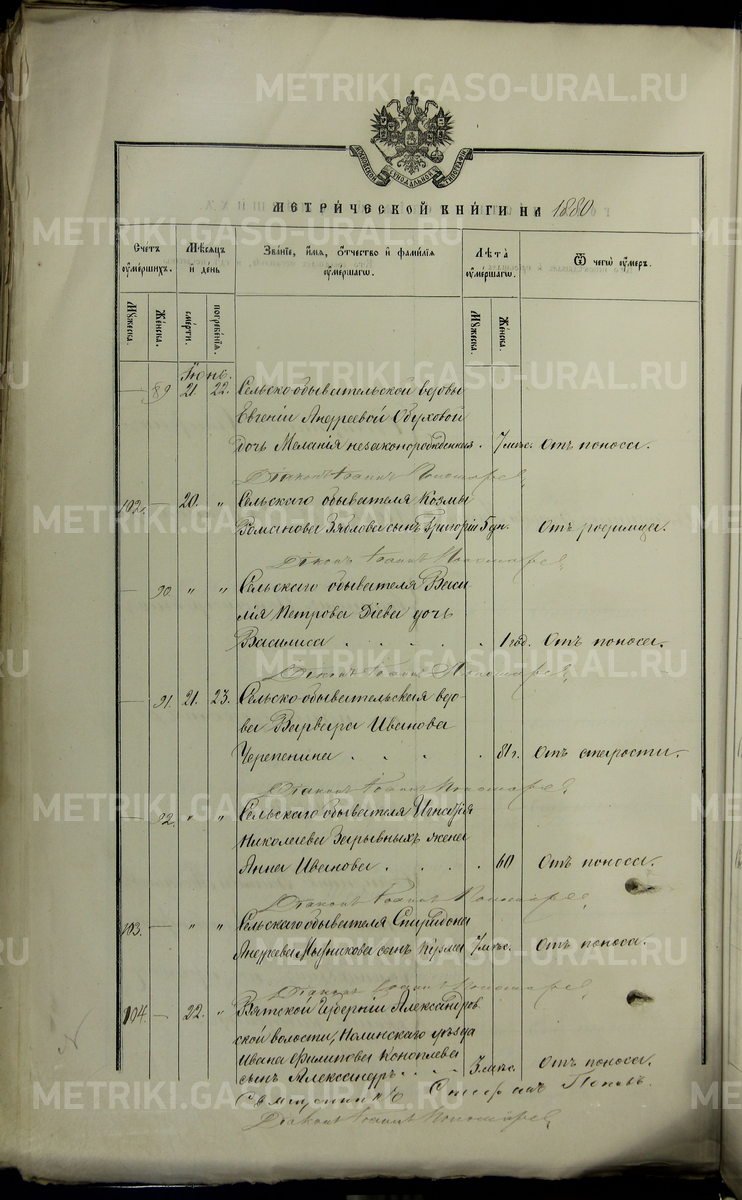 METRIKI.GASO-URAL.RU
МОСКОВСКОЙ СѴНОДАЛЬНОЙ ТИПОГРАФІИ
МЕТРИ́ЧЕСКОЙ КНИ́ГИ НА 1880
Счетъ оумершихъ.
Мѣсяцъ и день
Зва́нїе, и́мѧ, ѻ́тчество и фами́лїѧ оумершагѡ.
Лѣта̀ оумершагѡ.
Ѿ чегѡ̀ оу́меръ.
Мꙋжеска.
Женска.
смерти.
погребенїѧ.
Мꙋжеска.
Женска.
Іюнь.
— 89 21. 22. Сельско обывательской вдовы
Евгеніи Андреевой Обуховой
дочь Меланія незаконорожденная . 7 мѣс. Отъ поноса.
Діаконъ Іоаннъ Пономаревъ
102. — 20. " Сельскаго обывателя Козмы
Романова Зяблова сынъ Григорій 5 дн. Отъ родимца.
Діаконъ Іоаннъ Пономаревъ
— 90. " " Сельскаго обывателя Васи
лія Петрова Діева дочь
Василиса . . . . . 1 год. Отъ поноса.
Діаконъ Іоаннъ Пономаревъ
— 91. 21. 23. Сельско обывательская вдо-
ва Варвара Иванова
Черепенина . . . . 81 г. Отъ старости.
Діаконъ Іоаннъ Пономаревъ
— 92. " " Сельскаго обывателя Игнатія
Николаева Зарывныхъ жена
Анна Иванова . . . . 60 Отъ поноса.
Діаконъ Іоаннъ Пономаревъ
103. — " " Сельскаго обывателя Спиридона
Андреева сынъ Козма 7 мѣс. Отъ поноса.
Діаконъ Іоаннъ Пономаревъ
104. — 22. " Вятской Губерніи Александров
ской волости, Нолинскаго уѣзда
Ивана Филипова Коноплева
сынъ Александръ . . . 3 мѣс. Отъ поноса.
Священникъ Поповъ.
Діаконъ Іоаннъ Пономаревъ